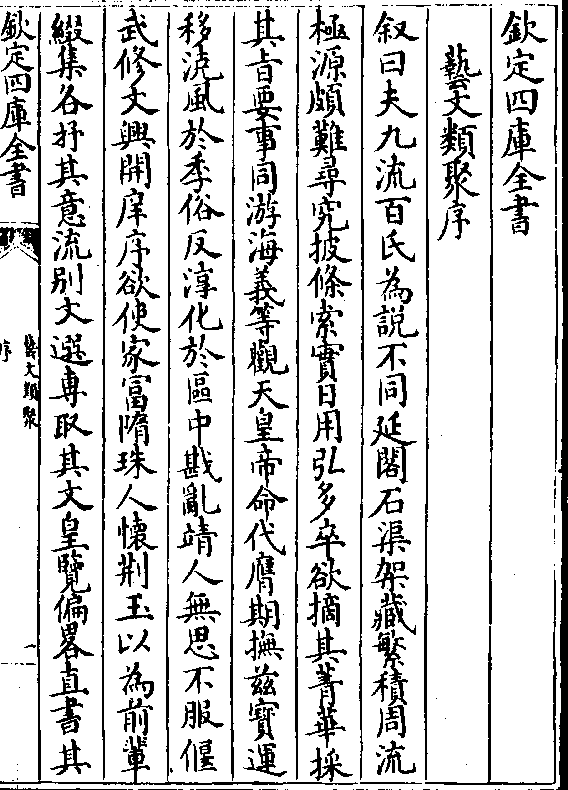 欽定四庫全書
藝文類聚序
叙曰夫九流百氏為說不同延閣石渠架藏繁積周流
極源頗難尋究披條索實日用弘多卒欲摘其菁華採
其旨要事同游海義等觀天皇帝命代膺期撫兹寳運
移澆風於季俗反淳化於區中戡亂靖人無思不服偃
武修文興開庠序欲使家富隋珠人懷荆玉以為前輩
綴集各抒其意流别文選專取其文皇覽徧畧直書其
欽定四庫全書
藝文類聚
序
一